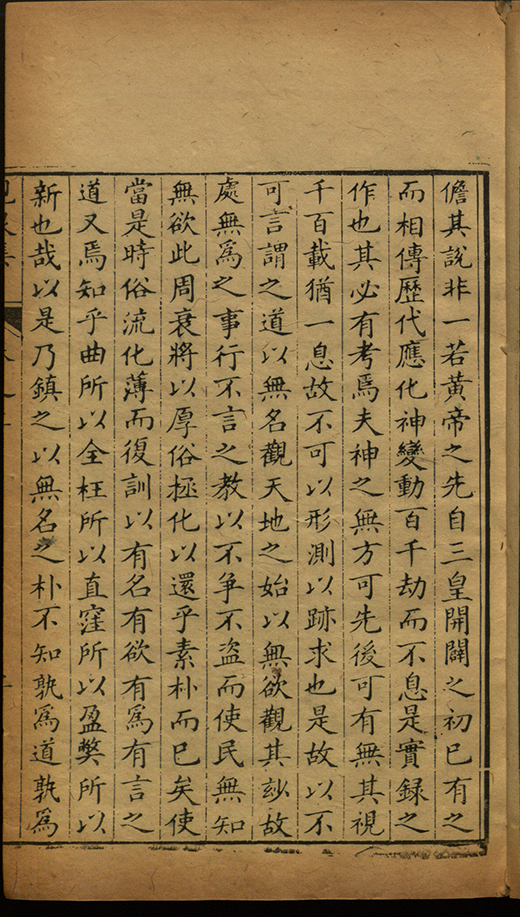 儋其說非一若黃帝之先自三皇開闢之初已有之
而相傳歷代應化神變動百千劫而不息是實録之
作也其必有考焉夫神之無方可先後可有無其視
千百載猶一息故不可以形測以跡求也是故以不
可言謂之道以無名觀天地之始以無欲觀其玅故
處無爲之事行不言之教以不爭不盜而使民無知
無欲此周衰將以厚俗極化以還乎素朴而已矣使
當是時俗流化薄而復訓以有名有欲有爲有言之
道又焉知乎曲所以全枉所以直窪所以盈獘所以
新也哉以是乃鎮之以無名之朴不知孰爲道孰爲